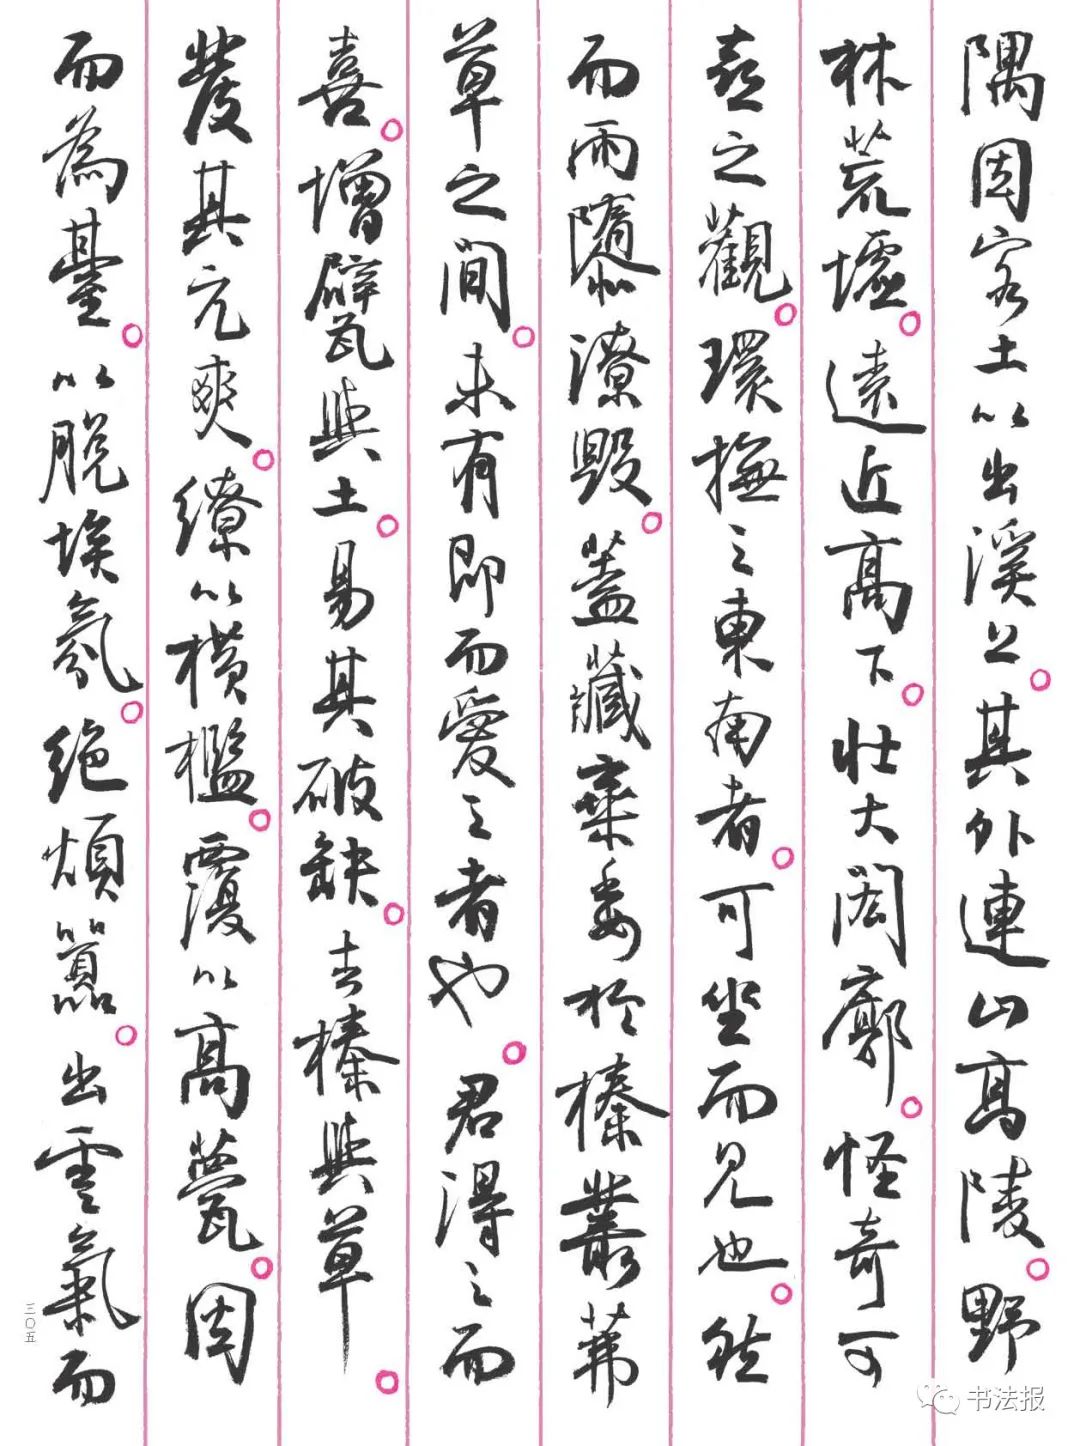 隅因客土以出溪上。其外連山高陵。野
林荒墟。遠近高下。壯大閎廓。怪奇可
喜之觀。環撫之東南者。可坐而見也。然
而雨隳潦毀。蓋藏棄委於榛叢茀
草之間。未有即而愛之者也。君得之而
喜。增甓與土。易其破缺。去榛與草。
發其亢爽。繚以橫檻。覆以高甍。因
而為臺。以脫埃氛。絕煩囂。出雲氣而
三〇五
书法报